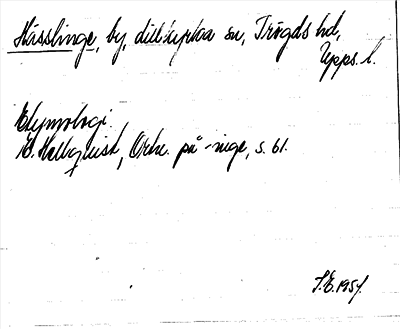 Hässlinge, by, Litslena sn, Trögds hd,
Upps. l.
Etymologi
E. Hellquist, Ortn. på -inge, s. 61.
S.E. 1957.